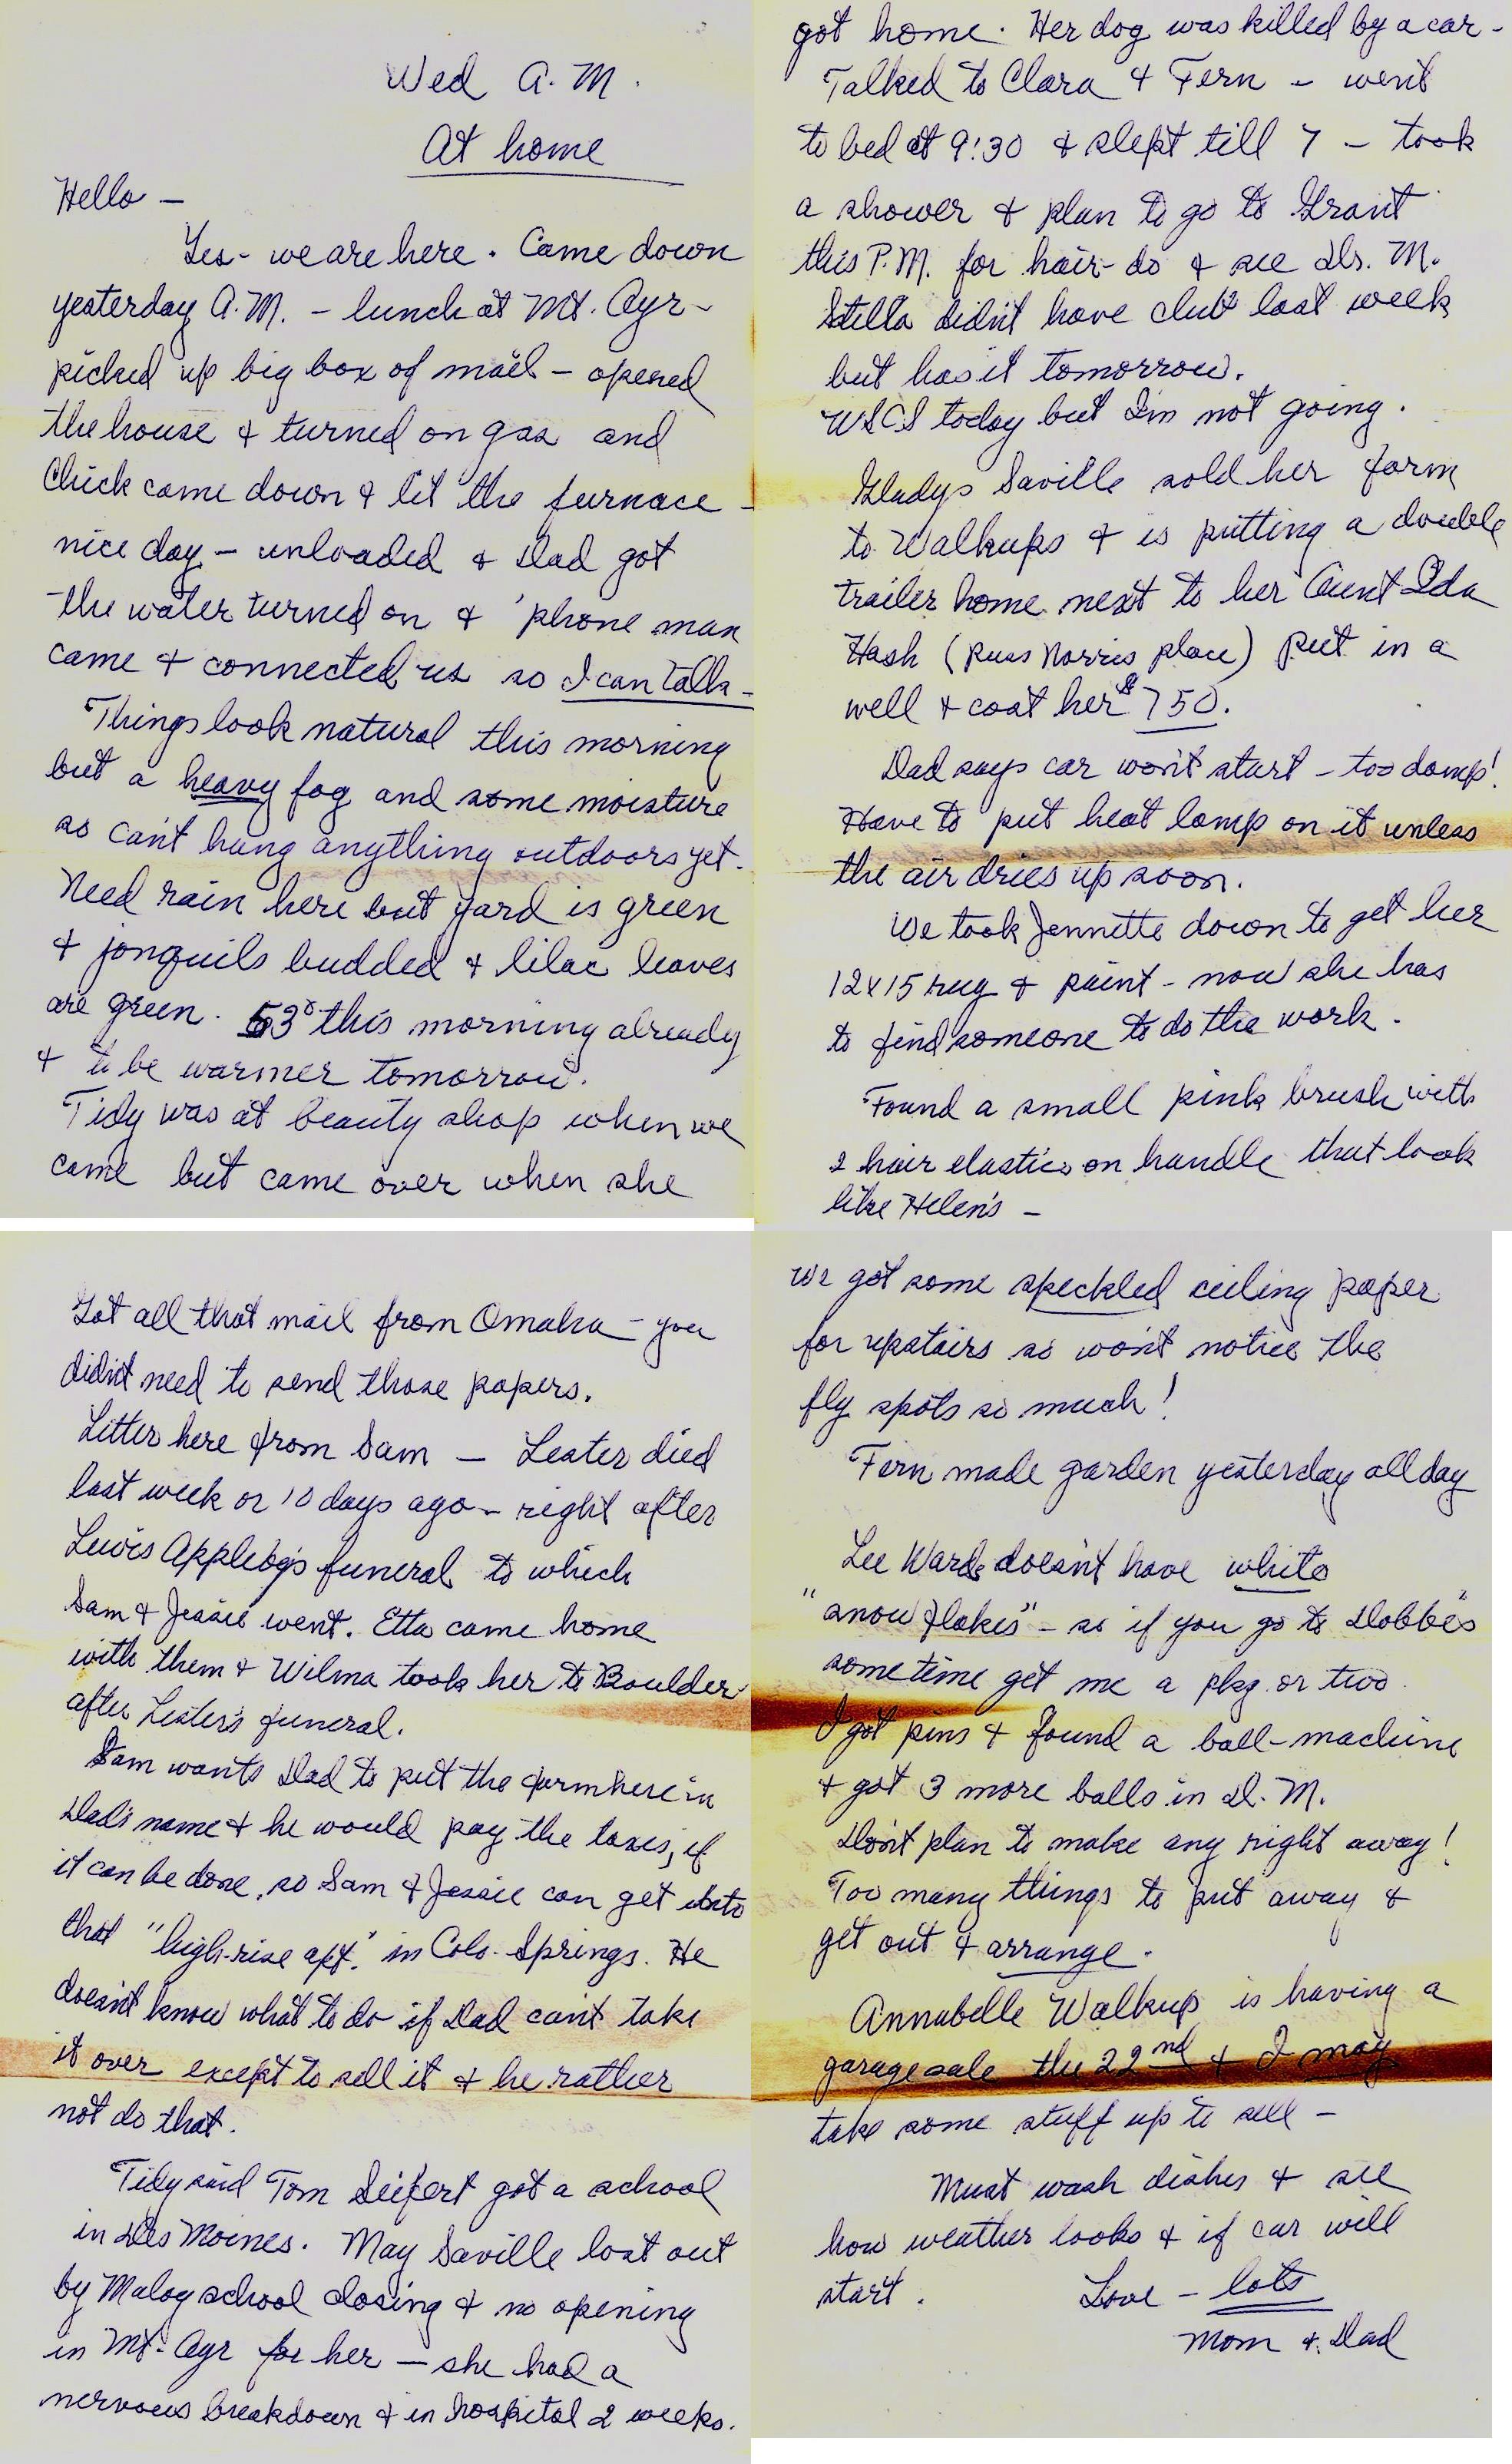 Wed A.M.
At home
Hello —
Yes - we are here. Came down
yesterday A.M. - lunch at Mt. Ayr -
picked up big box of mail - opened
the house & turned on gas and
Chick came down & lit the furnace -
nice day - unloaded & Dad got
the water turned on & 'phone man
came & connected us so I can talk -
Things look natural this morning
but a heavy fog and some moisture
so can't hang anything outdoors yet.
Need rain here but yard is green
& jonquils budded & lilac leaves
are green. 53° this morning already
& to be warmer tomorrow.
Tidy was at beauty shop when we
came but came over when she
got home. Her dog was killed by a car -
Talked to Clara & Fern - went
to bed at 9:30 & slept till 7 - took
a shower & plan to go to Grant
this P.M. for hair-do & see Dr. M.
Stella didn't have club last week
but has it tomorrow.
WSCS today but I'm not going.
Gladys Saville sold her farm
to Walkups & is putting a double
trailer home next to her Aunt Ida
Hash (Russ Norris place) put in a
well & cost her $750.
Dad says car won't start - too damp!
Have to put heat lamp on it unless
the air dries up soon.
We took Jennette down to get her
12x15 rug & paint - now she has
to find someone to do the work.
Found a small pink brush with
2 hair elastics on handle that look
like Helen's -
Got all that mail from Omaha - you
didn't need to send those papers.
Letter here from Sam - Lester died
last week or 10 days ago - right after
Lewis Appleby's funeral to which
Sam & Jessie went. Etta came home
with them & Wilma took her to Boulder
after Lester's funeral.
Sam wants Dad to put the farm here in
Dad's name & he would pay the taxes, if
it can be done, so Sam & Jessie can get into
that "high-rise apt." in Colo. Springs. He
doesn't know what to do if Dad can't take
it over except to sell it & he rather
not do that.
Tidy said Tom Seifert got a school
in Des Moines. May Saville lost out
by Maloy school closing & no opening
in Mt. Ayr for her - she had a
nervous breakdown & in hospital 2 weeks.
We got some speckled ceiling paper
for upstairs so won't notice the
fly spots so much!
Fern made garden yesterday all day
Lee Wards doesn't have white
"snow flakes" - so if you go to "Dobbe's"
sometime get me a pkg. or two.
I got pins & found a ball-machine
& got 3 more balls in D.M.
Don't plan to make any right away!
Too many things to put away &
get out & arrange.
Annabelle Walkup is having a
garage sale the 22nd & I may
take some stuff up to sell -
Must wash dishes & see
how weather looks & if car will
start.
Love - lots
Mom & Dad